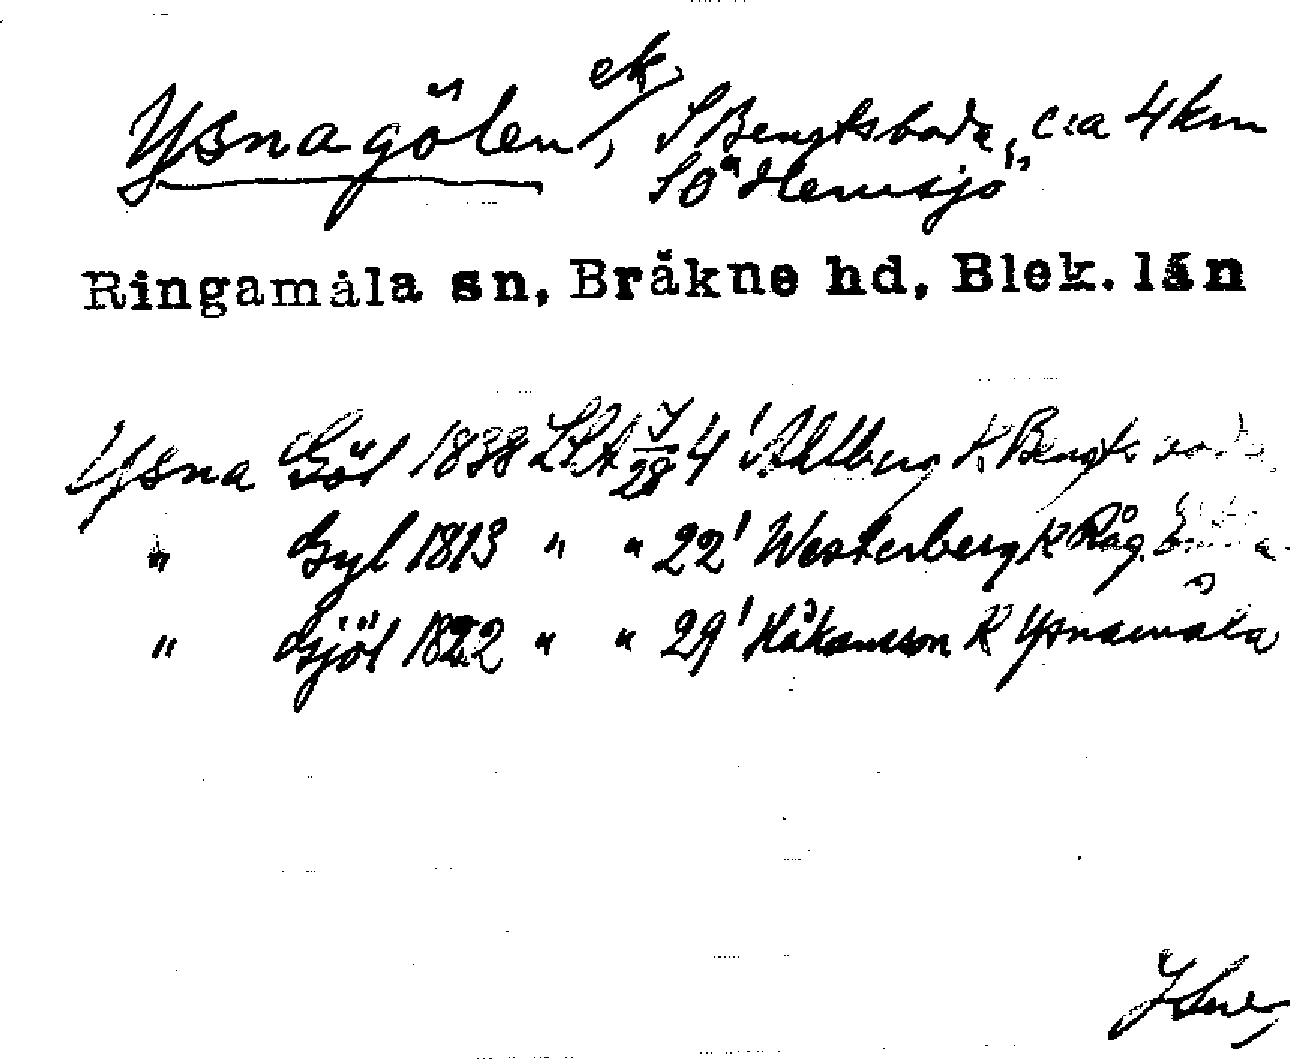 Ysnagölen, ek, S Bengtsboda, c:a 4 km
SO "Hemsjö"
Ringamåla sn, Bräkne hd, Blek. län
Ysna Göl 1838 LSA 4' Ahlberg K Bengts boda
" Gyl 1813 " " 22' Westerberg K Råg.
" Gjöl 1822 " " 29' Håkansson K Ysnamåla